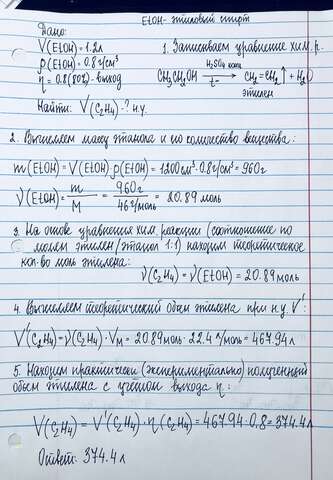 EtOH - этиловый спирт
Дано:
V(EtOH) = 1.2л
ρ(EtOH) = 0.8 г/см³
η = 0.8 (80%) - выход
Найти: V(C₂H₄) - ? н.у.
1. Записываем уравнение хим. р.
CH₃CH₂OH H₂SO₄ конц t° CH₂=CH₂↑ + H₂O
этилен
2. Вычисляем массу этанола и его количество вещества:
m(EtOH) = V(EtOH)·ρ(EtOH) = 1200см³·0.8г/см³ = 960г
ν(EtOH) = m/M = 960г/46г/моль = 20.89 моль
3. На основе уравнения хим. реакции (соотношение по
молям этилен/этанол 1:1) находим теоретическое
кол-во моль этилена:
ν(C₂H₄) = ν(EtOH) = 20.89 моль
4. Вычисляем теоретический объем этилена при н.у. V':
V'(C₂H₄) = ν(C₂H₄)·Vм = 20.89моль·22.4 л/моль = 467.94л
5. Находим практически (экспериментально) полученный
объем этилена с учётом выхода η:
V(C₂H₄) = V'(C₂H₄)·η(C₂H₄) = 467.94·0.8 = 374.4л
Ответ: 374.4л